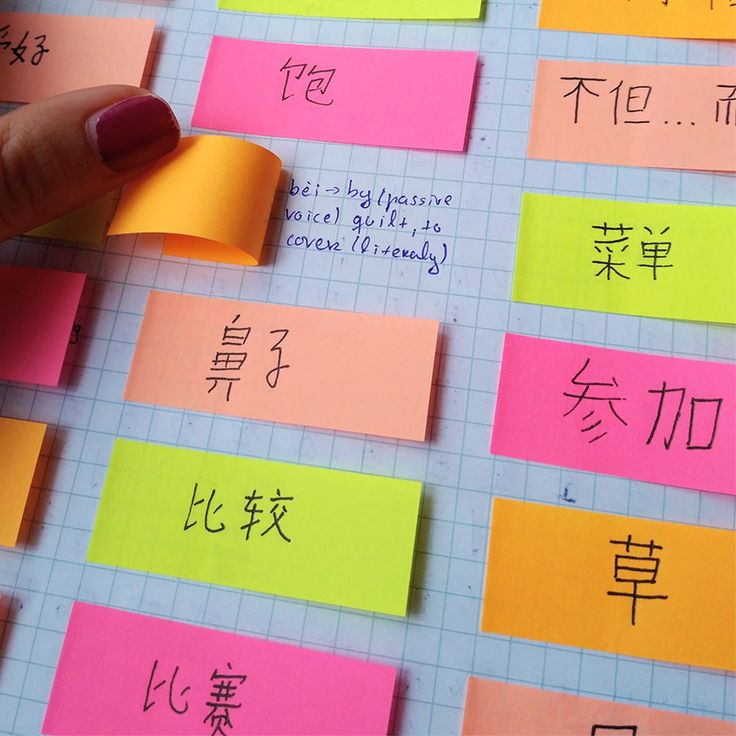 好
饱
不但...而
bèi → by (passive
voice) quilt, to
cover (literaly)
菜单
鼻子
参加
比较
草
比赛